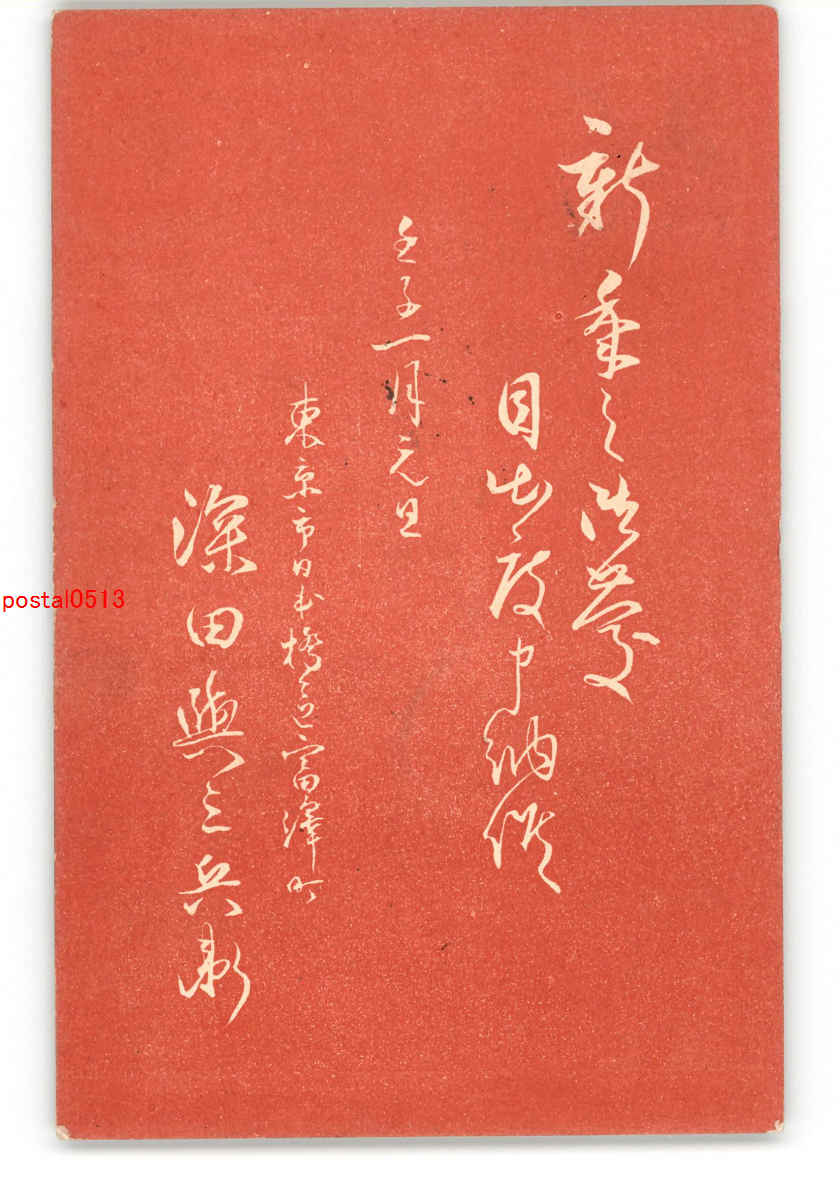 新年之御慶
目出度申納候
壬子一月元旦
東京市日本橋区富澤町
深田與三兵衛
postal0513